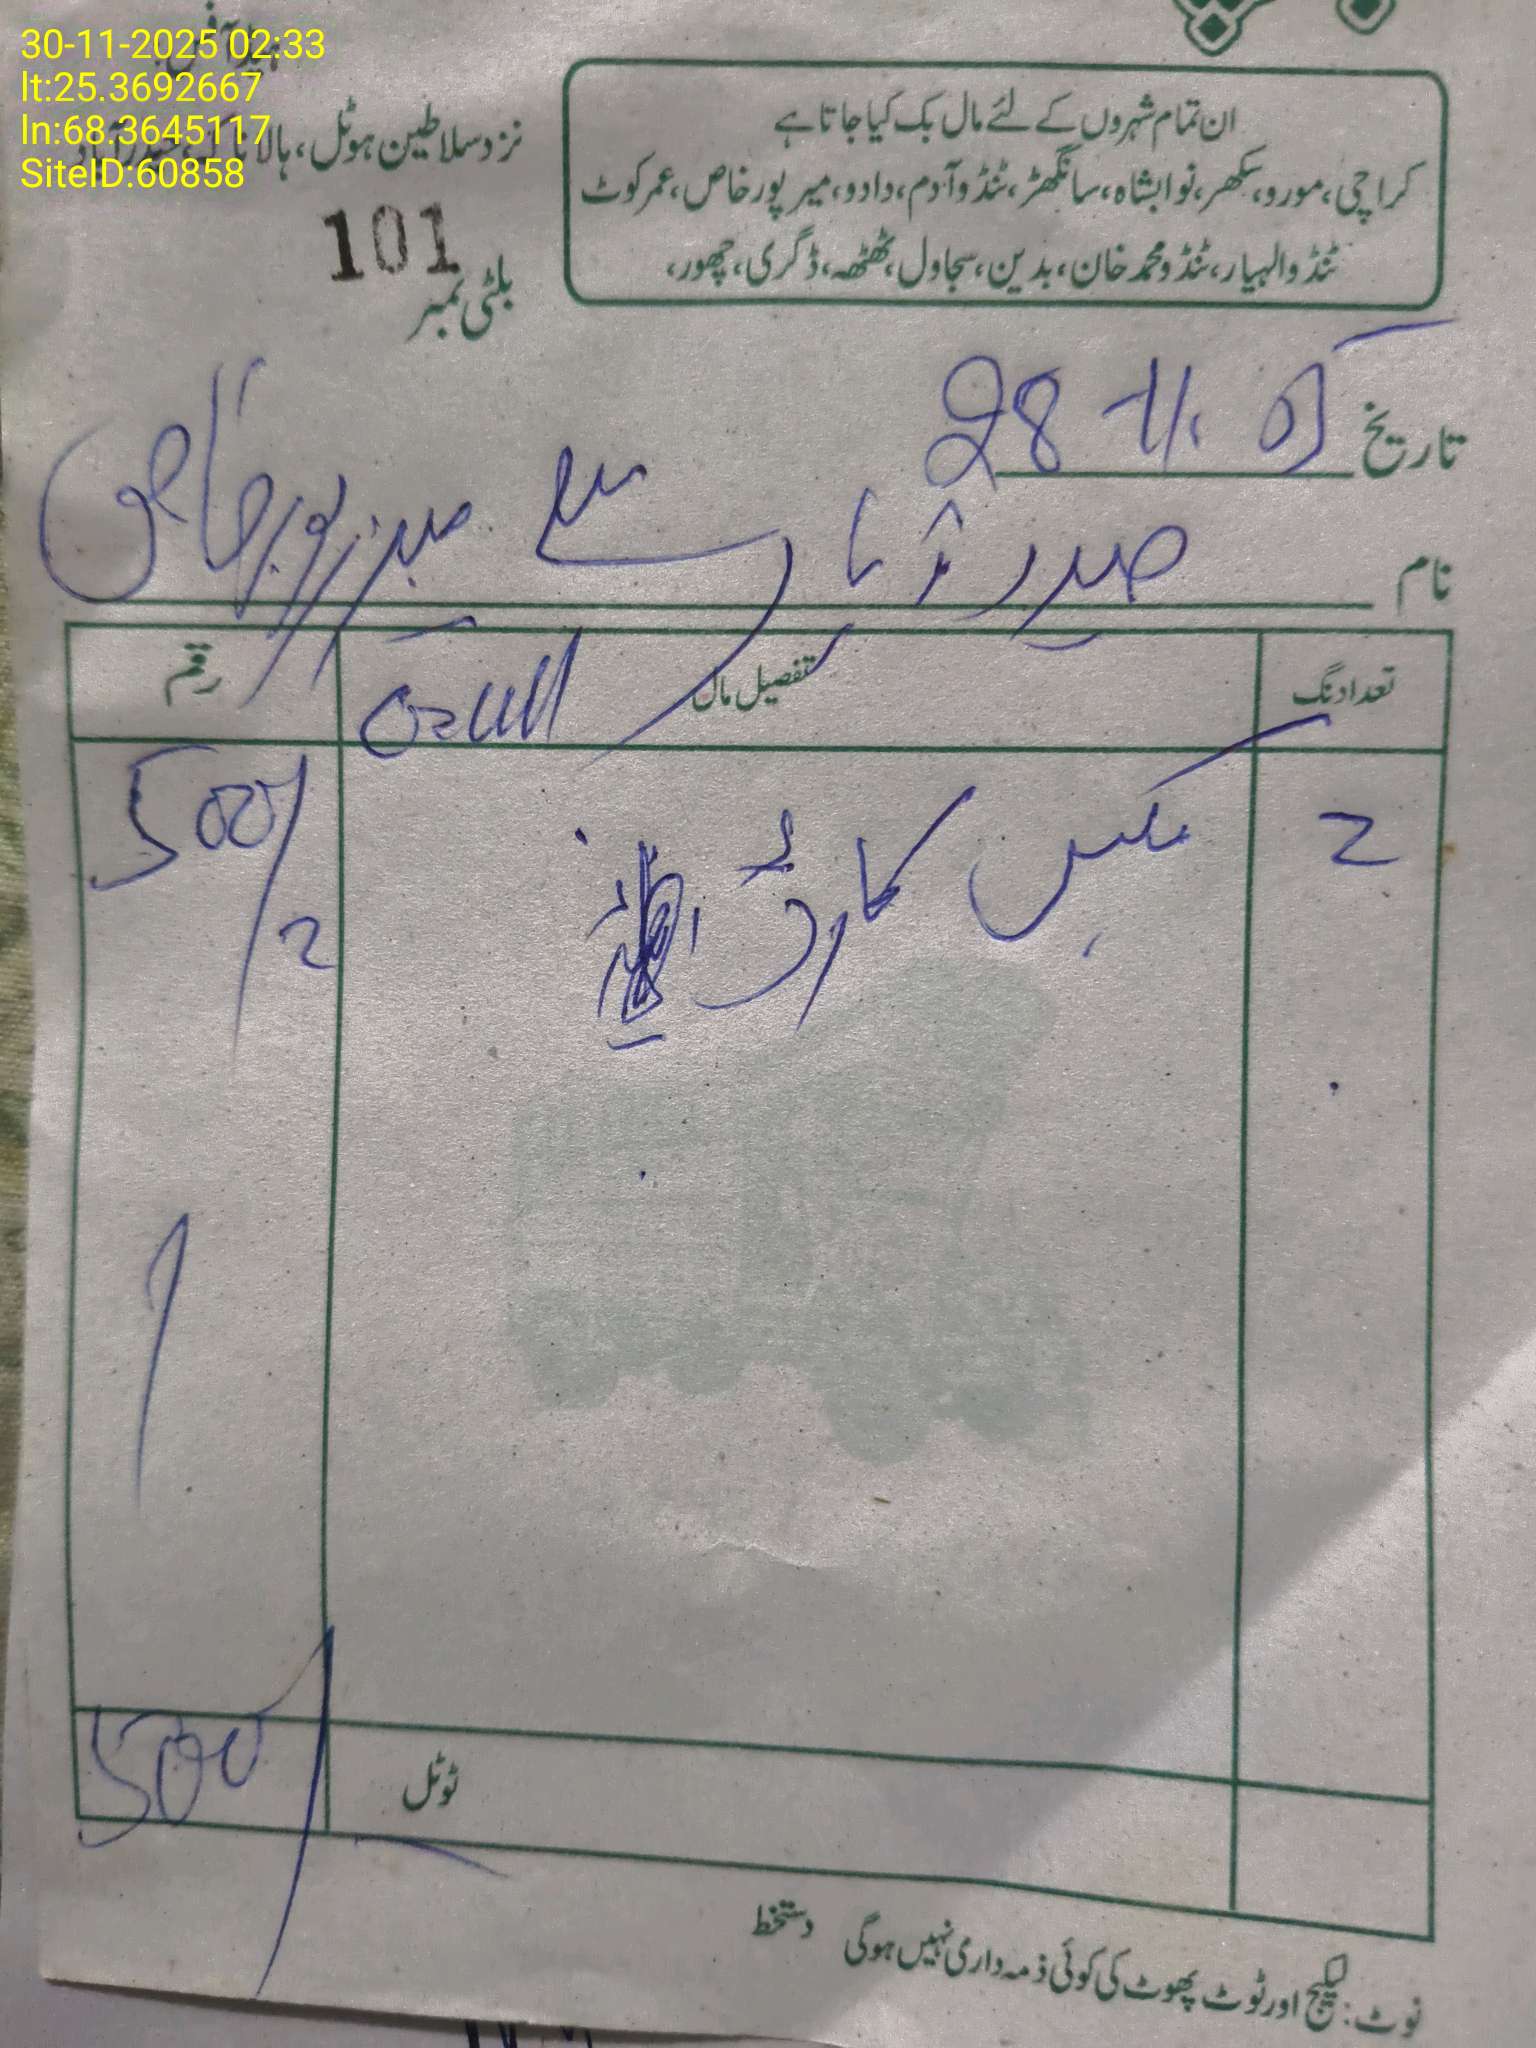 30-11-2025 02:33
lt:25.3692667
ln:68.3645117
SiteID:60858
نزد سلاطین ہوٹل، ہالا ناکہ، حیدرآباد
ان تمام شہروں کے لئے مال بک کیا جاتا ہے
کراچی، مورو، سکھر، نوابشاہ، سانگھڑ، ٹنڈوآدم، دادو، میرپورخاص، عمرکوٹ
ٹنڈوالہیار، ٹنڈومحمدخان، بدین، سجاول، ٹھٹھہ، ڈگری، چھور،
بلٹی نمبر 101
تاریخ 28-11
نام حیدرآباد سے میرپورخاص
تعداد نگ تفصیل مال رقم
2 مکس کارٹن 500/2
ٹوٹل 500
نوٹ: لیکیج اور ٹوٹ پھوٹ کی کوئی ذمہ داری نہیں ہوگی دستخط